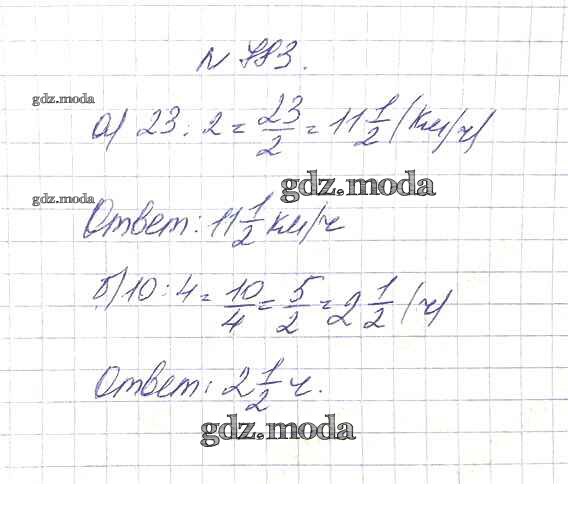 № 783.
gdz.moda
а) 23 : 2 = 23/2 = 11 1/2 (км/ч)
gdz.moda
gdz.moda
Ответ: 11 1/2 км/ч
б) 10 : 4 = 10/4 = 5/2 = 2 1/2 (ч)
Ответ: 2 1/2 ч.
gdz.moda